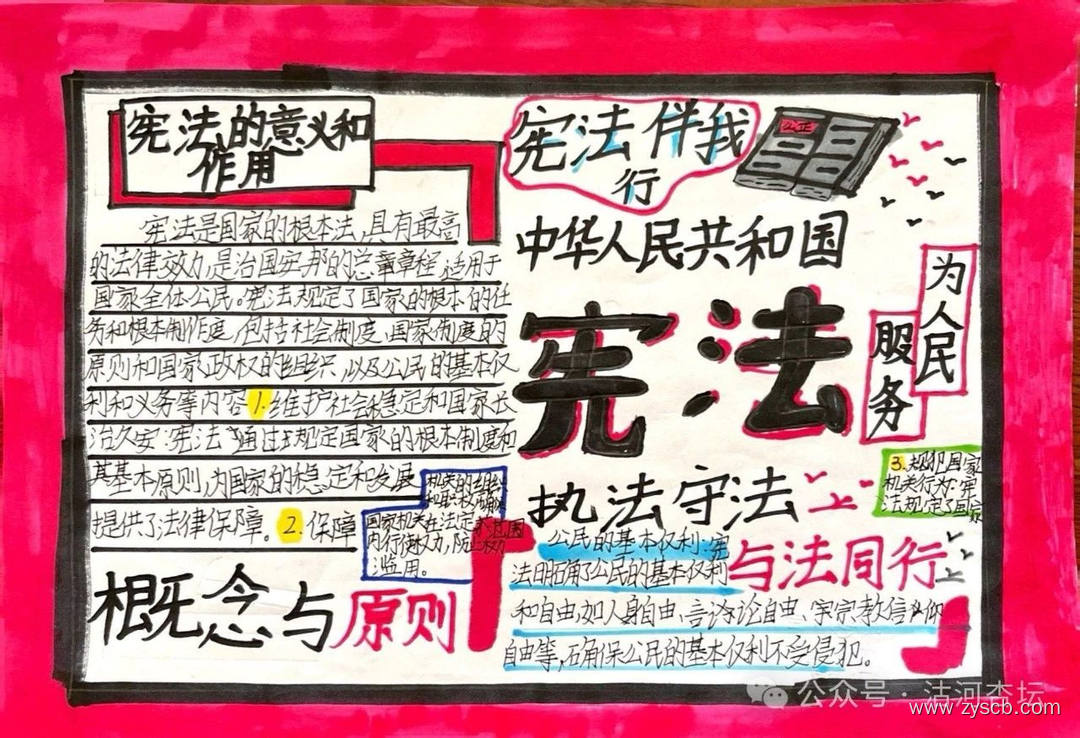 宪法的意义和
作用
宪法是国家的根本法，具有最高
的法律效力，是治国安邦的总章章程，适用于
国家全体公民。宪法规定了国家的根本的任
务和根本制作度，包括社会制度、国家制度的
原则和国家政权的组织，以及公民的基本权
利和义务等内容1.维护社会稳定和国家长
治久安：宪法通过规定国家的根本制度和
其基本原则，为国家的稳定和发展
提供了法律保障。2.保障
机关的组织
和职权，确保
国家机关在法定的范围
内行使权力，防止权力
滥用。
概念与原则
宪法伴我
行
公正
中华人民共和国
宪法
为人民
服务
执法守法
与法同行
3.规犯国家
机关行为：宪
法规定了国家
公民的基本权利：宪
法明确了公民的基本权利
和自由，如人身自由、言论自由、宗教信仰
自由等，确保公民的基本权利不受侵犯。
公众号·沽河杏坛
www.zyscb.com